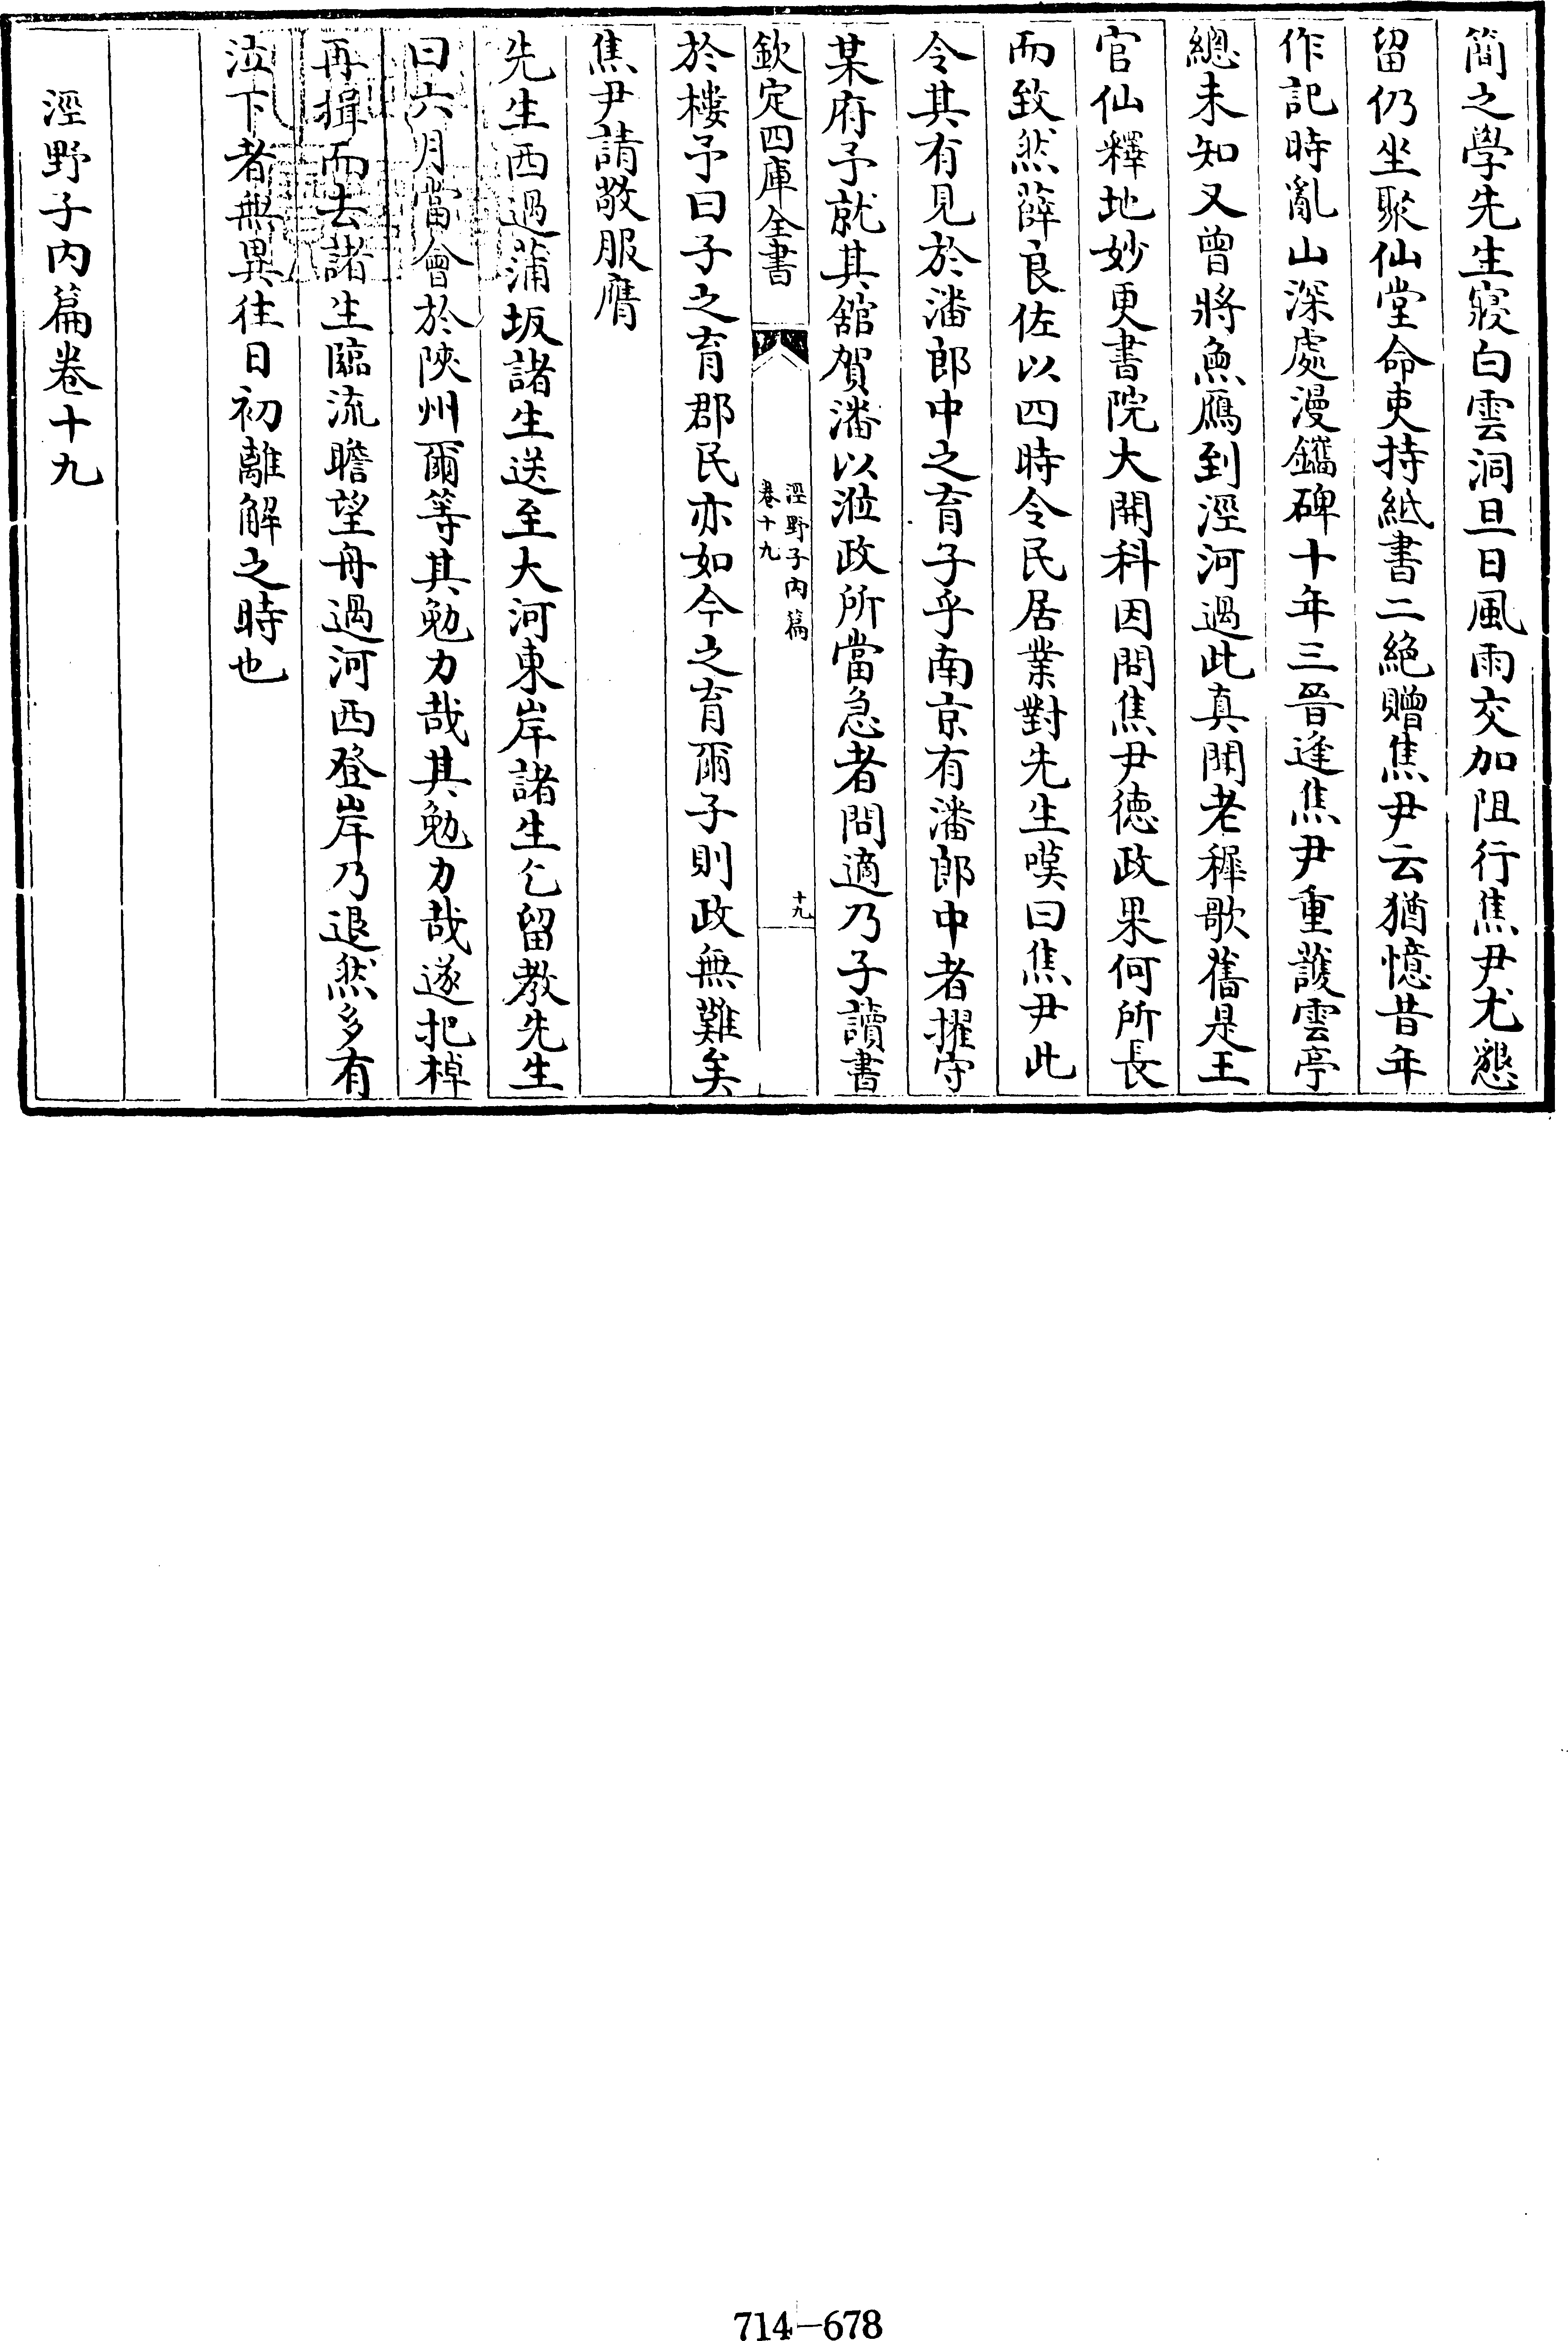 簡之學先生寢白雲洞旦日風雨交加阻行焦尹尤懇
留仍坐聚仙堂命吏持紙書二絶贈焦尹云猶憶昔年
作記時亂山深處漫鐫碑十年三晉逢焦尹重護雲亭
總未知又曾將魚鴈到涇河過此真聞老穉歌舊是王
官仙釋地妙更書院大開科因問焦尹德政果何所長
而致然薛良佐以四時令民居業對先生嘆曰焦尹此
令其有見於潘郎中之育子乎南京有潘郎中者擢守
某府予就其舘賀潘以涖政所當急者問適乃子讀書
欽定四庫全書
涇野子内篇
卷十九
十九
於樓予曰子之育郡民亦如今之育爾子則政無難矣
焦尹請敬服膺
先生西過蒲坂諸生送至大河東岸諸生乞留教先生
曰六月當會於陝州爾等其勉力哉其勉力哉遂把棹
再揖而去諸生臨流瞻望舟過河西登岸乃退然多有
泣下者無異往日初離解之時也
涇野子内篇卷十九
714-678